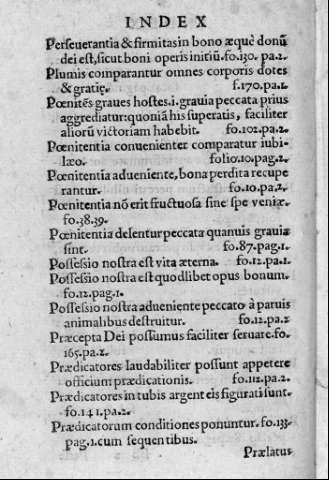 INDEX
Perseuerantia & firmitas in bono æquè donũ
dei est, sicut boni operis initiũ. fo.130. pa.2.
Plumis comparantur omnes corporis dotes
& gratię. f.170.pa.1.
Pœnitẽs graues hostes .i. grauia peccata prius
aggrediatur: quoniã his superatis, faciliter
aliorũ victoriam habebit. fo.102.pa.2.
Pœnitentia conuenienter comparatur iubi-
læo. folio.10.pag.2.
Pœnitentia adueniente, bona perdita recupe
rantur. fo.10.pa.2.
Pœnitentia nõ erit fructuosa sine spe veniæ.
fo.38.39.
Pœnitentia delentur peccata quanuis grauia
sint. fo.87.pag.1.
Possessio nostra est vita æterna. fo.12.pa.1.
Possessio nostra est quodlibet opus bonum.
fo.12.pag.1.
Possessio nostra adueniente peccato à paruis
animalibus destruitur. fo.12.pa.2
Præcepta Dei possumus faciliter seruare. fo.
165.pa.2.
Prædicatores laudabiliter possunt appetere
officium prædicationis. fo.112.pa.2.
Prædicatores in tubis argenteis figurati sunt.
fo.141.pa.2.
Prædicatorum conditiones ponuntur. fo.133.
pag.1.cum sequentibus.
Prælatus